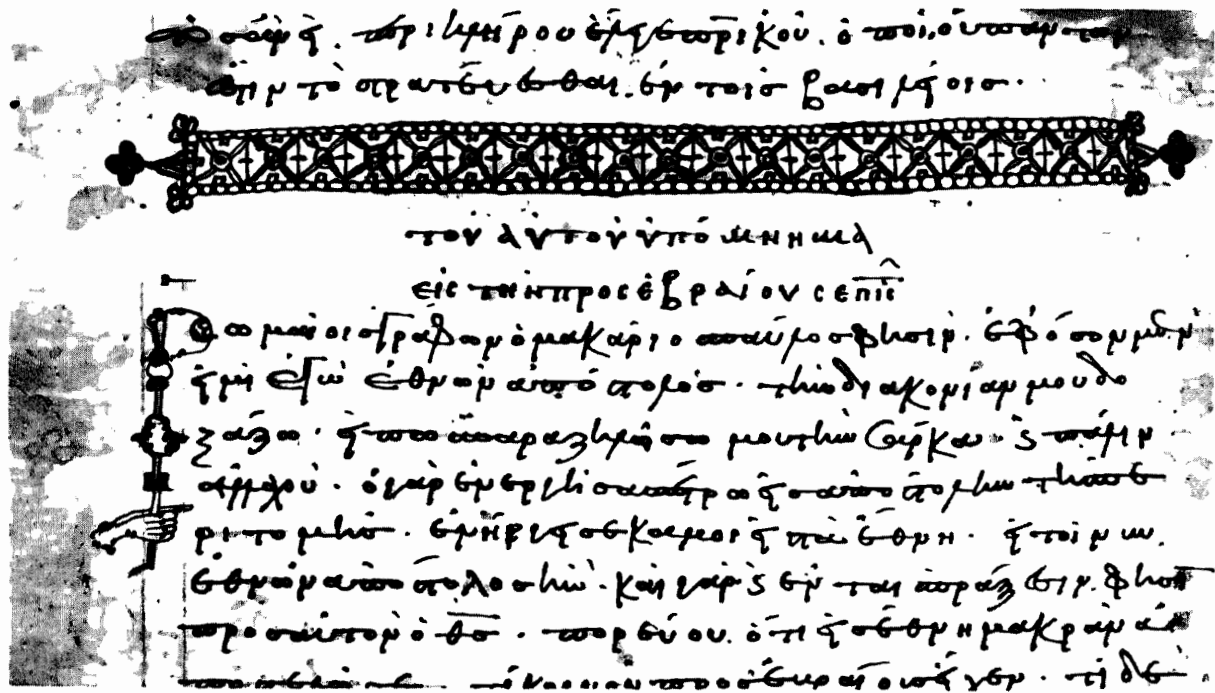 ἐστὶν τὸ στρατεύεσθαι ἐν τοῖς βασιλείοις·
τοῦ αὐτοῦ ὑπόμνημα
εἰς τὴν πρὸς ἑβραίους ἐπις
Ῥωμαίοις γράφων ὁ μακάριος παῦλος φησὶν· ἐφ' ὅσον μὲν
εἰμὶ ἐγὼ ἐθνῶν ἀπόστολος· τὴν διακονίαν μου δο
ξάζω· εἴ πως παραζηλώσω μου τὴν σάρκα· καὶ πάλιν
ἀλλαχοῦ· ὁ γὰρ ἐνεργήσας πέτρω εἰς ἀποστολὴν τῆς πε
ριτομῆς· ἐνήργησε καμοὶ εἰς τὰ ἔθνη· εἰ τοίνυν
ἐθνῶν ἀπόστολος ἦν· καὶ γὰρ καὶ ἐν ταῖς πράξεσιν φησὶ
πρὸς αὐτὸν ὁ θς· πορεύου. ὅτι εἰς ἔθνη μακρὰν
πρὸς ἑβραίους εἶχεν· τί δὲ